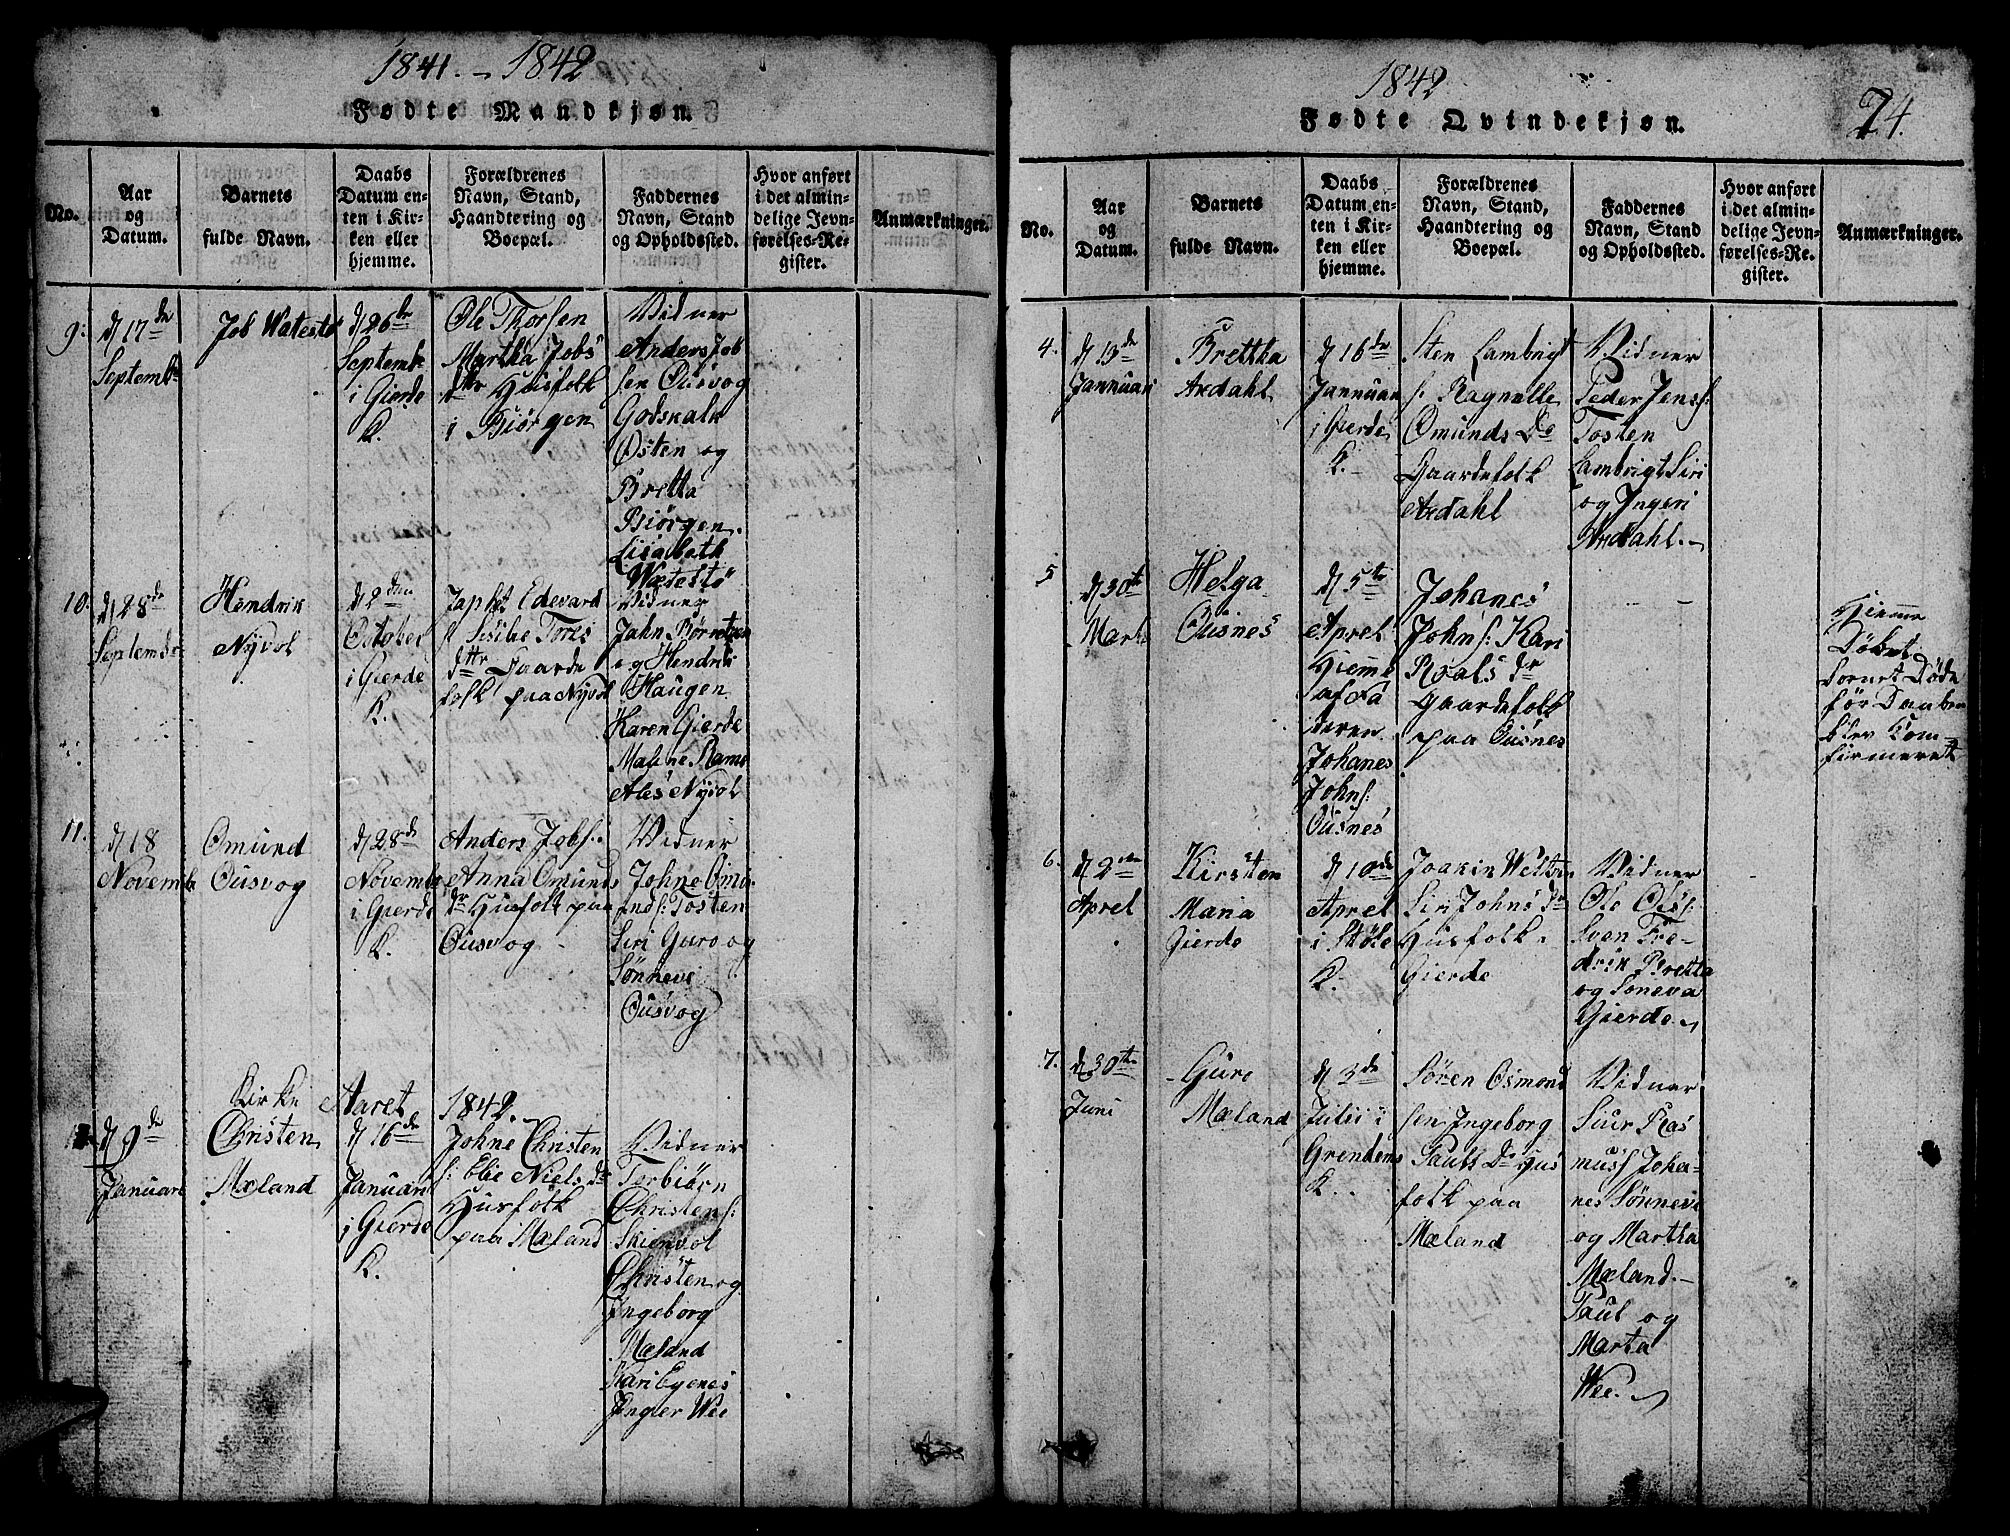 1841. - 1842
Fødte Mandkjøn.
No.
Aar
og
Datum.
Barnets
fulde Navn.
Daabs
Datum en-
ten i Kir-
ken eller
hjemme.
Forældrenes
Navn, Stand,
Haandtering og
Boepæl.
Faddernes
Navn, Stand
og Opholdssted.
Hvor anført
i det almin-
delige Jevn-
førelses-Re-
gister.
Anmærkninger.
9.
d 17de
Septembr
Job Watestø
d 26de
Septembr
i Gierde
K.
Ole Thorsen
Martha Jobs
dtr Husfolk
i Biørgen
Vidner
Anders Job
sen Ousvog
Godskalk
Østen og
Bretta
Biørgen.
Lisabeth
Wætestø
10.
d 28de
Septembr
Hendrik
Nyvol
d 2den
October
i Gierde
K.
Japhet Edevard
s Sisilie Tores
dtr Gaarde
folk paa Nyvol
Vidner
Jahn Børretzen
og Hendrik
Haugen
Karen Gierde
Malene Rams
Ales Nyvol
11.
d 18
Novembr
Omund
Ousvog
d 28de
Novembr
i Gierde
K.
Anders Jobs:
Anna Omunds
dr Husfolk paa
Ousvog
Vidner
Johne Omu
nds: Tosten
Siri Guro og
Sønnevi
Ousvog
Kirke Aaret 1842.
d 9de
Januari
Christen
Mæland
d 16de
Januari
i Gierde
K.
Johne Christen
s: Elie Niels dr
Husfolk
paa Mæland
Vidner
Torbiørn
Christens:
Skienvol
Christen og
Ingeborg
Mæland
Kari Egenes
Ingier Wee
1842
Fødte Qvindekjøn.
74.
No.
Aar
og
Datum.
Barnets
fulde Navn.
Daabs
Datum en-
ten i Kir-
ken eller
hjemme.
Forældrenes
Navn, Stand,
Haandtering og
Boepæl.
Faddernes
Navn, Stand
og Opholdssted.
Hvor anført
i det almin-
delige Jevn-
førelses-Re-
gister.
Anmærkninger.
4.
d 13de
Jannuari
Brettha
Ardahl
d 16de
Jannuari
i Gierde
K.
Sten Lambrigt
s: Ragnelle
Omunds Dr
Gaardefolk
Ardahl
Vidner
Peder Jens:
Tosten
Lambrigt Siri
og Ingeri
Ardahl.
5
d 30te
Marts
Helga
Ousnes
d 5te
Aprel
Hiemme
af Fa
deren
Johanes
Johns:
Ousnes
Johanes
Johns: Kari
Roals dr
Gaardefolk
paa Ousnes
Hiemme
Døbet
Bornet Døde
før Daaben
blev Kom-
firmeret
6.
d 2den
Aprel
Kirsten
Maria
Gierde
d 10de
Aprel
i Støle
K.
Joakin
Siri Johns dr
Husfolk
Gierde
Vidner
Ole Ols:
Sven Fre-
drik Bretta
og Soneva
Gierde
7.
d 30te
Juni
Guro
Mæland
d 3de
Julii i
Grendems
K.
Søren Osmond
sen Ingeborg
Pauls Dr Hus
folk paa
Mæland
Vidner
Siur Ras
muss Joha-
nes Sønnevi
og Martha
Mæland.
Paul og
Marta
Wee.